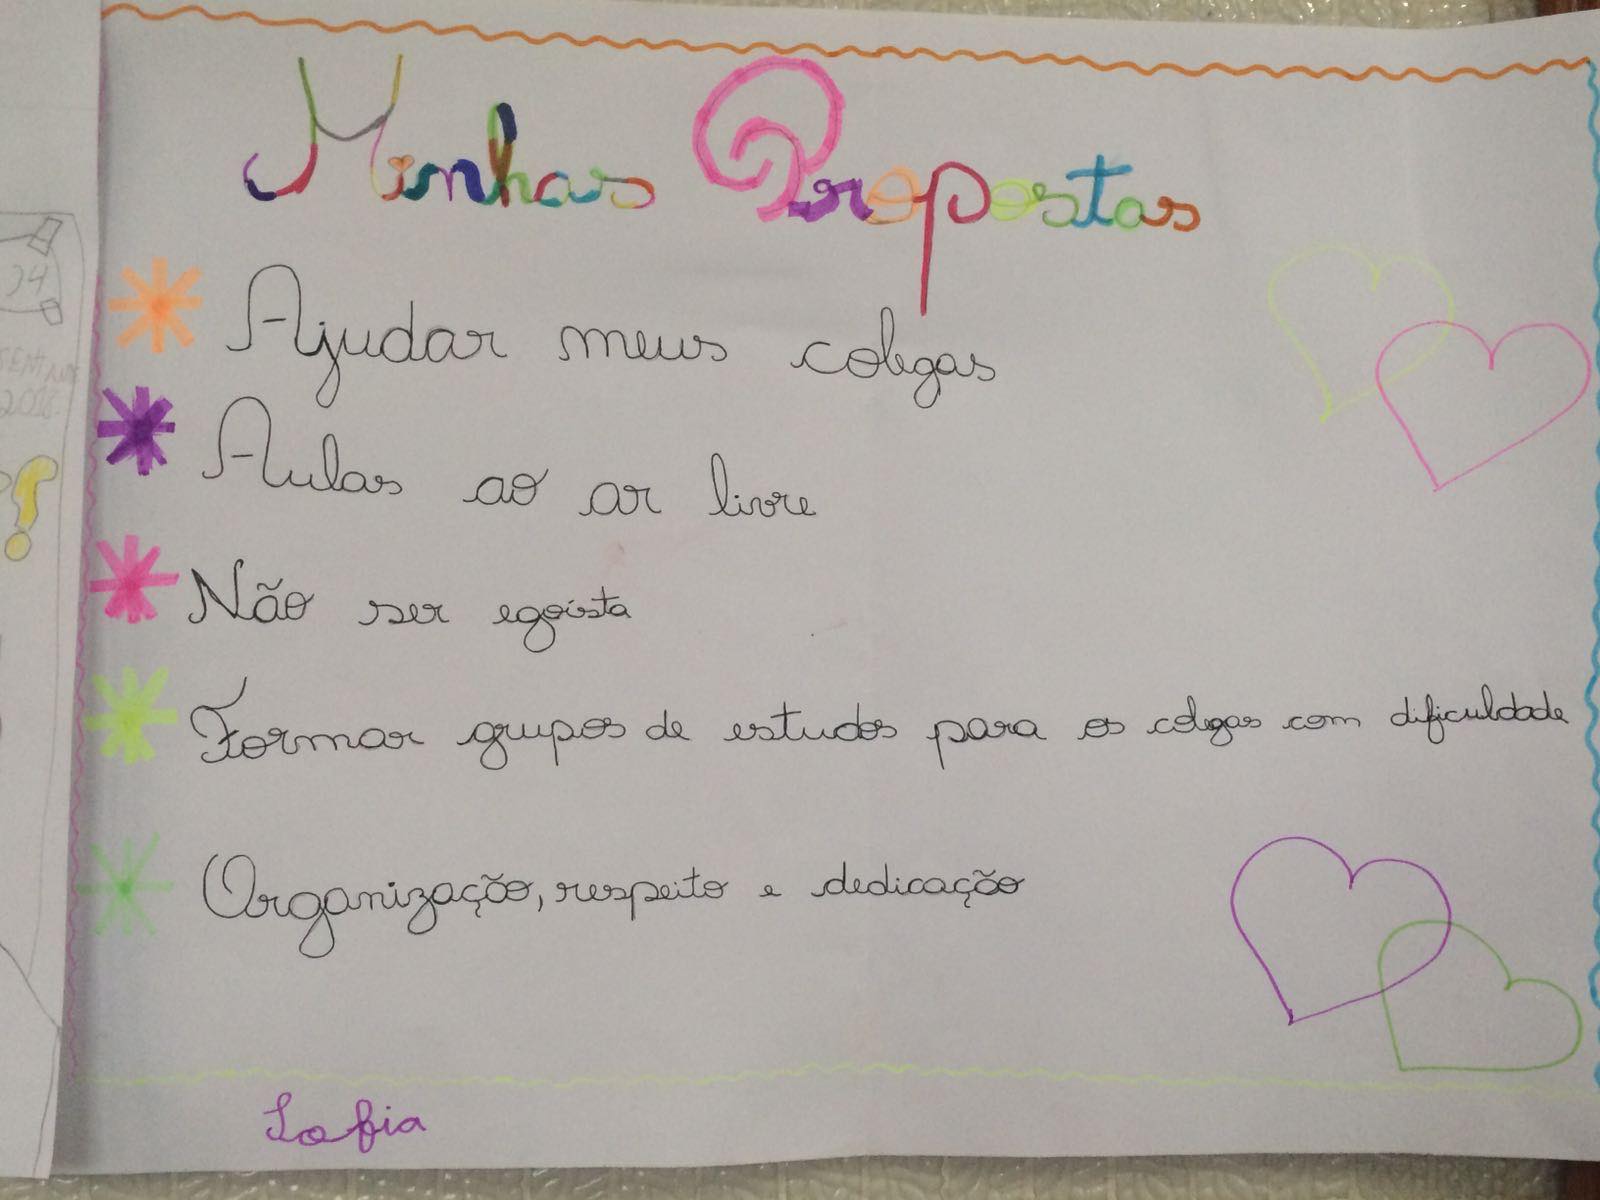 Minhas Propostas
Ajudar meus colegas
Aulas ao ar livre
Não ser egoísta
Formar grupos de estudos para os colegas com dificuldade
Organização, respeito e dedicação
Sofia
34
2018